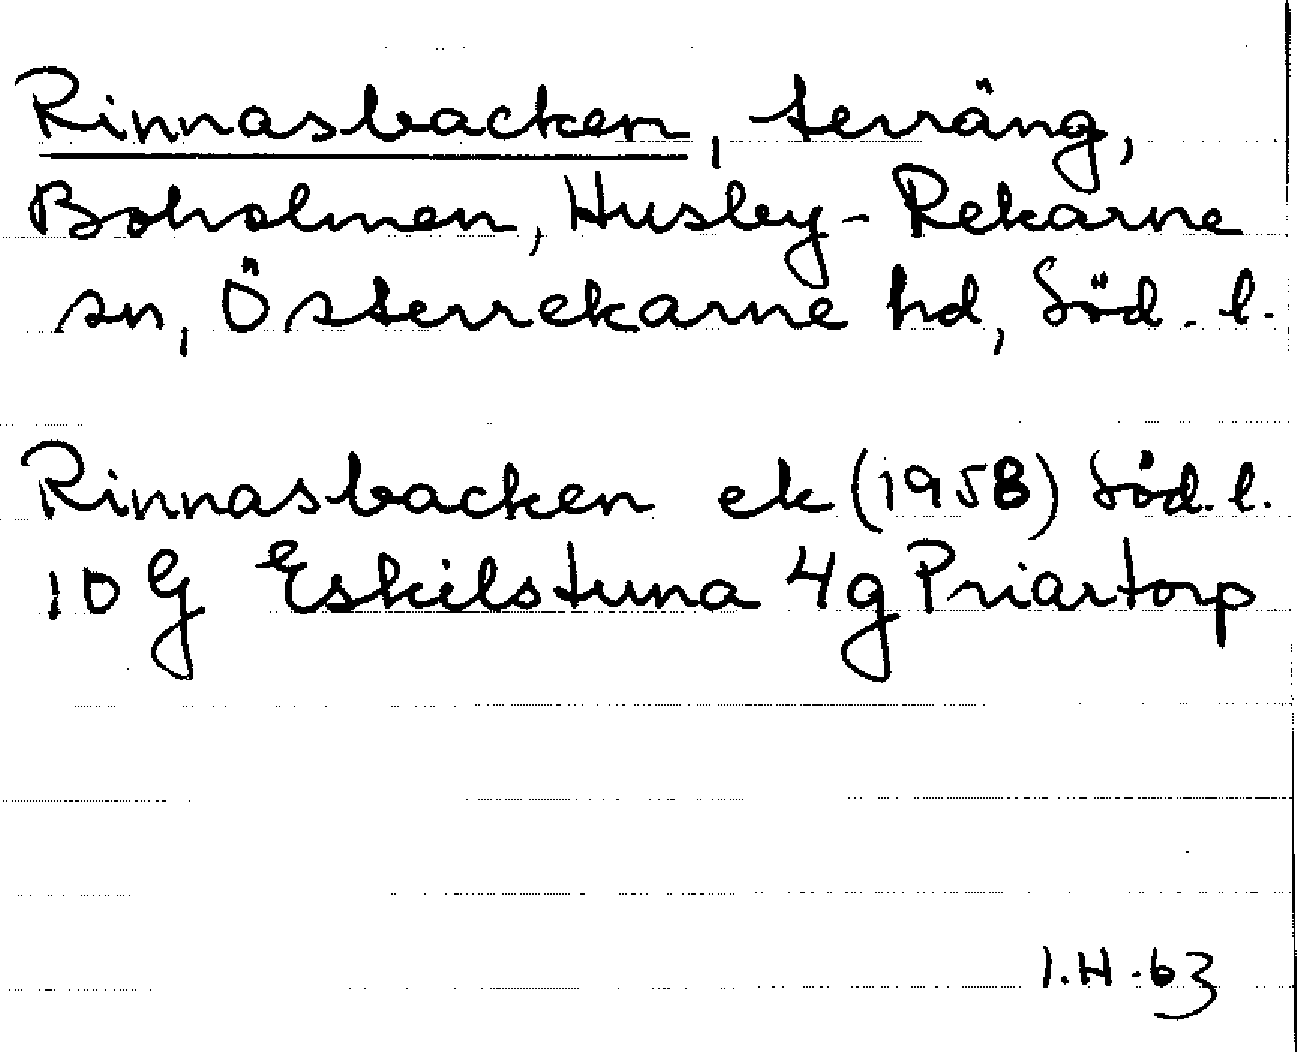 Rinnasbacken, terräng,
Boholmen, Husby-Rekarne
sn, Österrekarne hd, Söd. l.
Rinnasbacken ek (1958) Söd. l.
10 G Eskilstuna 4g Priartorp
I.H. 63